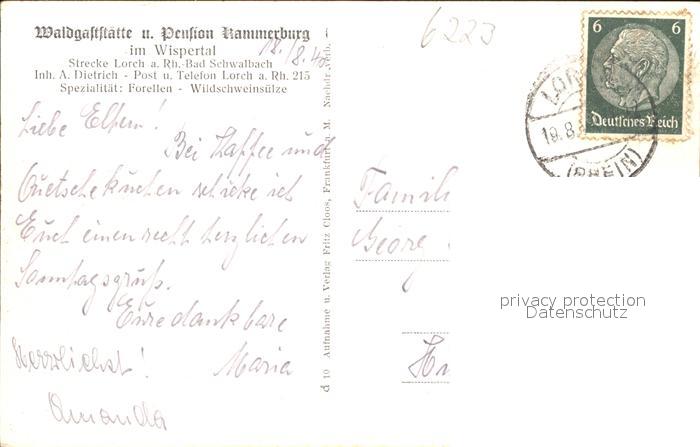 Waldgaststätte u. Pension Kammerburg
im Wispertal
Strecke Lorch a. Rh.-Bad Schwalbach
Inh. A. Dietrich - Post u. Telefon Lorch a. Rh. 215
Spezialität: Forellen - Wildschweinsülze
18./8.40
Liebe Eltern!
Bei Kaffee und
Quetschekuchen schicke ich
Euch einen recht herzlichen
Sonntagsgruß.
Eure dankbare
Maria
Herzlichst!
Amanda
d 10 Aufnahme u. Verlag Fritz Cloos, Frankfurt a. M. Nachdr. verb.
6223
6 6
Deutsches Reich
LOR
19.8.
(RHEIN)
Famili
Georg
privacy protection
Datenschutz